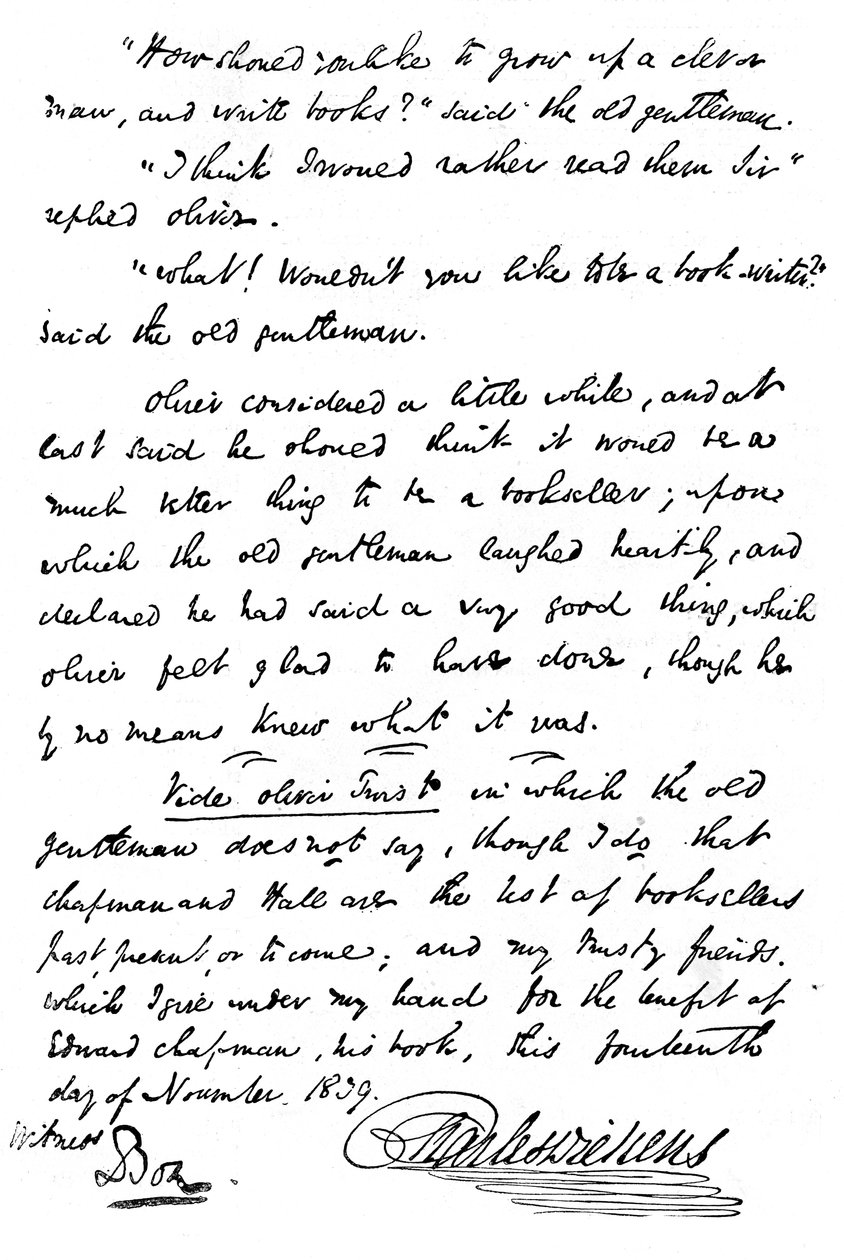 "How should you like to grow up a clever
man, and write books?" said the old gentleman.
"I think I would rather read them Sir"
replied Oliver.
"What! Wouldn't you like to be a book-writer?"
said the old gentleman.
Oliver considered a little while, and at
last said he should think it would be a
much better thing to be a bookseller; upon
which the old gentleman laughed heartily, and
declared he had said a very good thing, which
Oliver felt glad to have done, though he
by no means knew what it was.
Vide Oliver Twist in which the old
gentleman does not say, though I do that
Chapman and Hall are the best of booksellers
past, present, or to come; and my trusty friends.
Which I give under my hand for the benefit of
Edward Chapman, his book, this fourteenth
day of November 1839.
Witness
Boz.
Charles Dickens